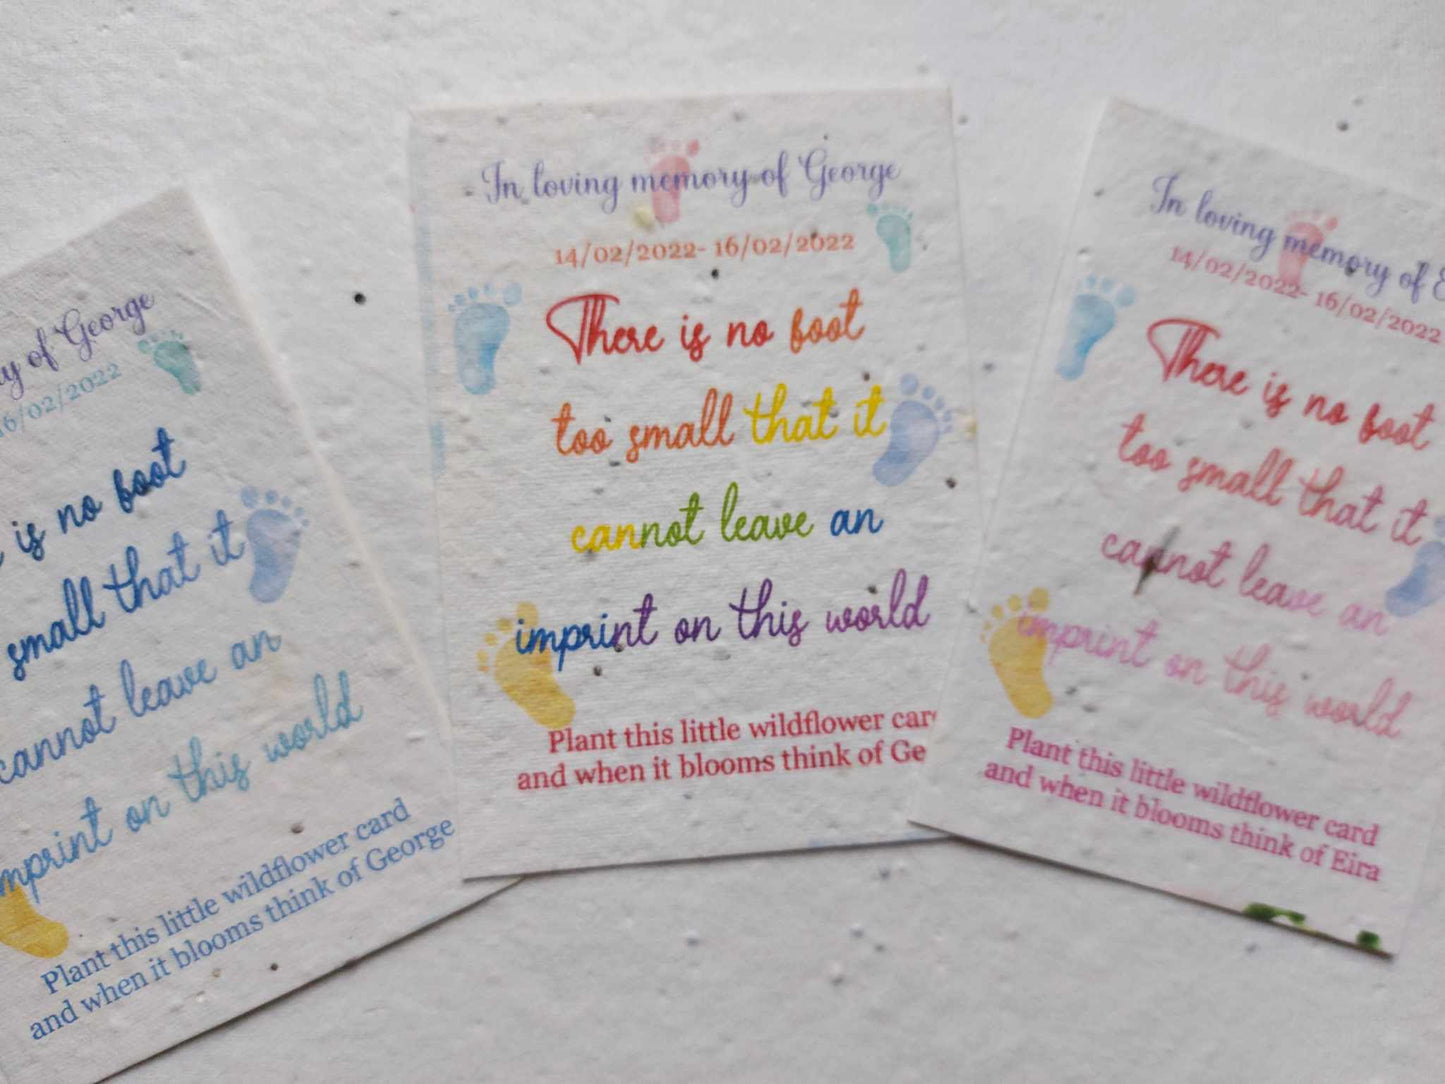 y of George
16/02/2022
is no foot
small that it
cannot leave an
mprint on this world
Plant this little wildflower card
and when it blooms think of George
In loving memory of George
14/02/2022- 16/02/2022
There is no foot
too small that it
cannot leave an
imprint on this world
Plant this little wildflower car
and when it blooms think of Ge
In loving memory of E
14/02/2022- 16/02/2022
There is no foot
too small that it
cannot leave an
imprint on this world
Plant this little wildflower card
and when it blooms think of Eira